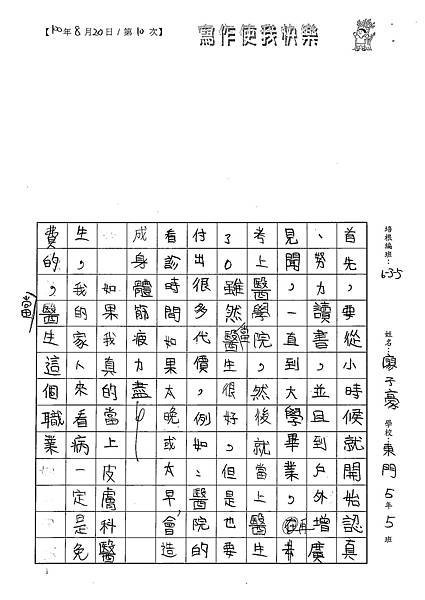 【100年8月20日/第10次】
寫作使我快樂
培根編班：635
姓名：廖子豪 學校：東門5年5班
首先，要從小時候就開始認真
、努力讀書，並且到戶外增廣
見聞，一直到大學畢業，再
考上醫學院，然後就當上醫生
了。雖然當醫生很好，但是也要
付出很多代價，例如：醫院的
看診時間如果太晚或太早，會造
成身體節疲力盡。
如果我真的當上皮膚科醫
生，我的家人來看病一定是免
費的，當醫生這個職業